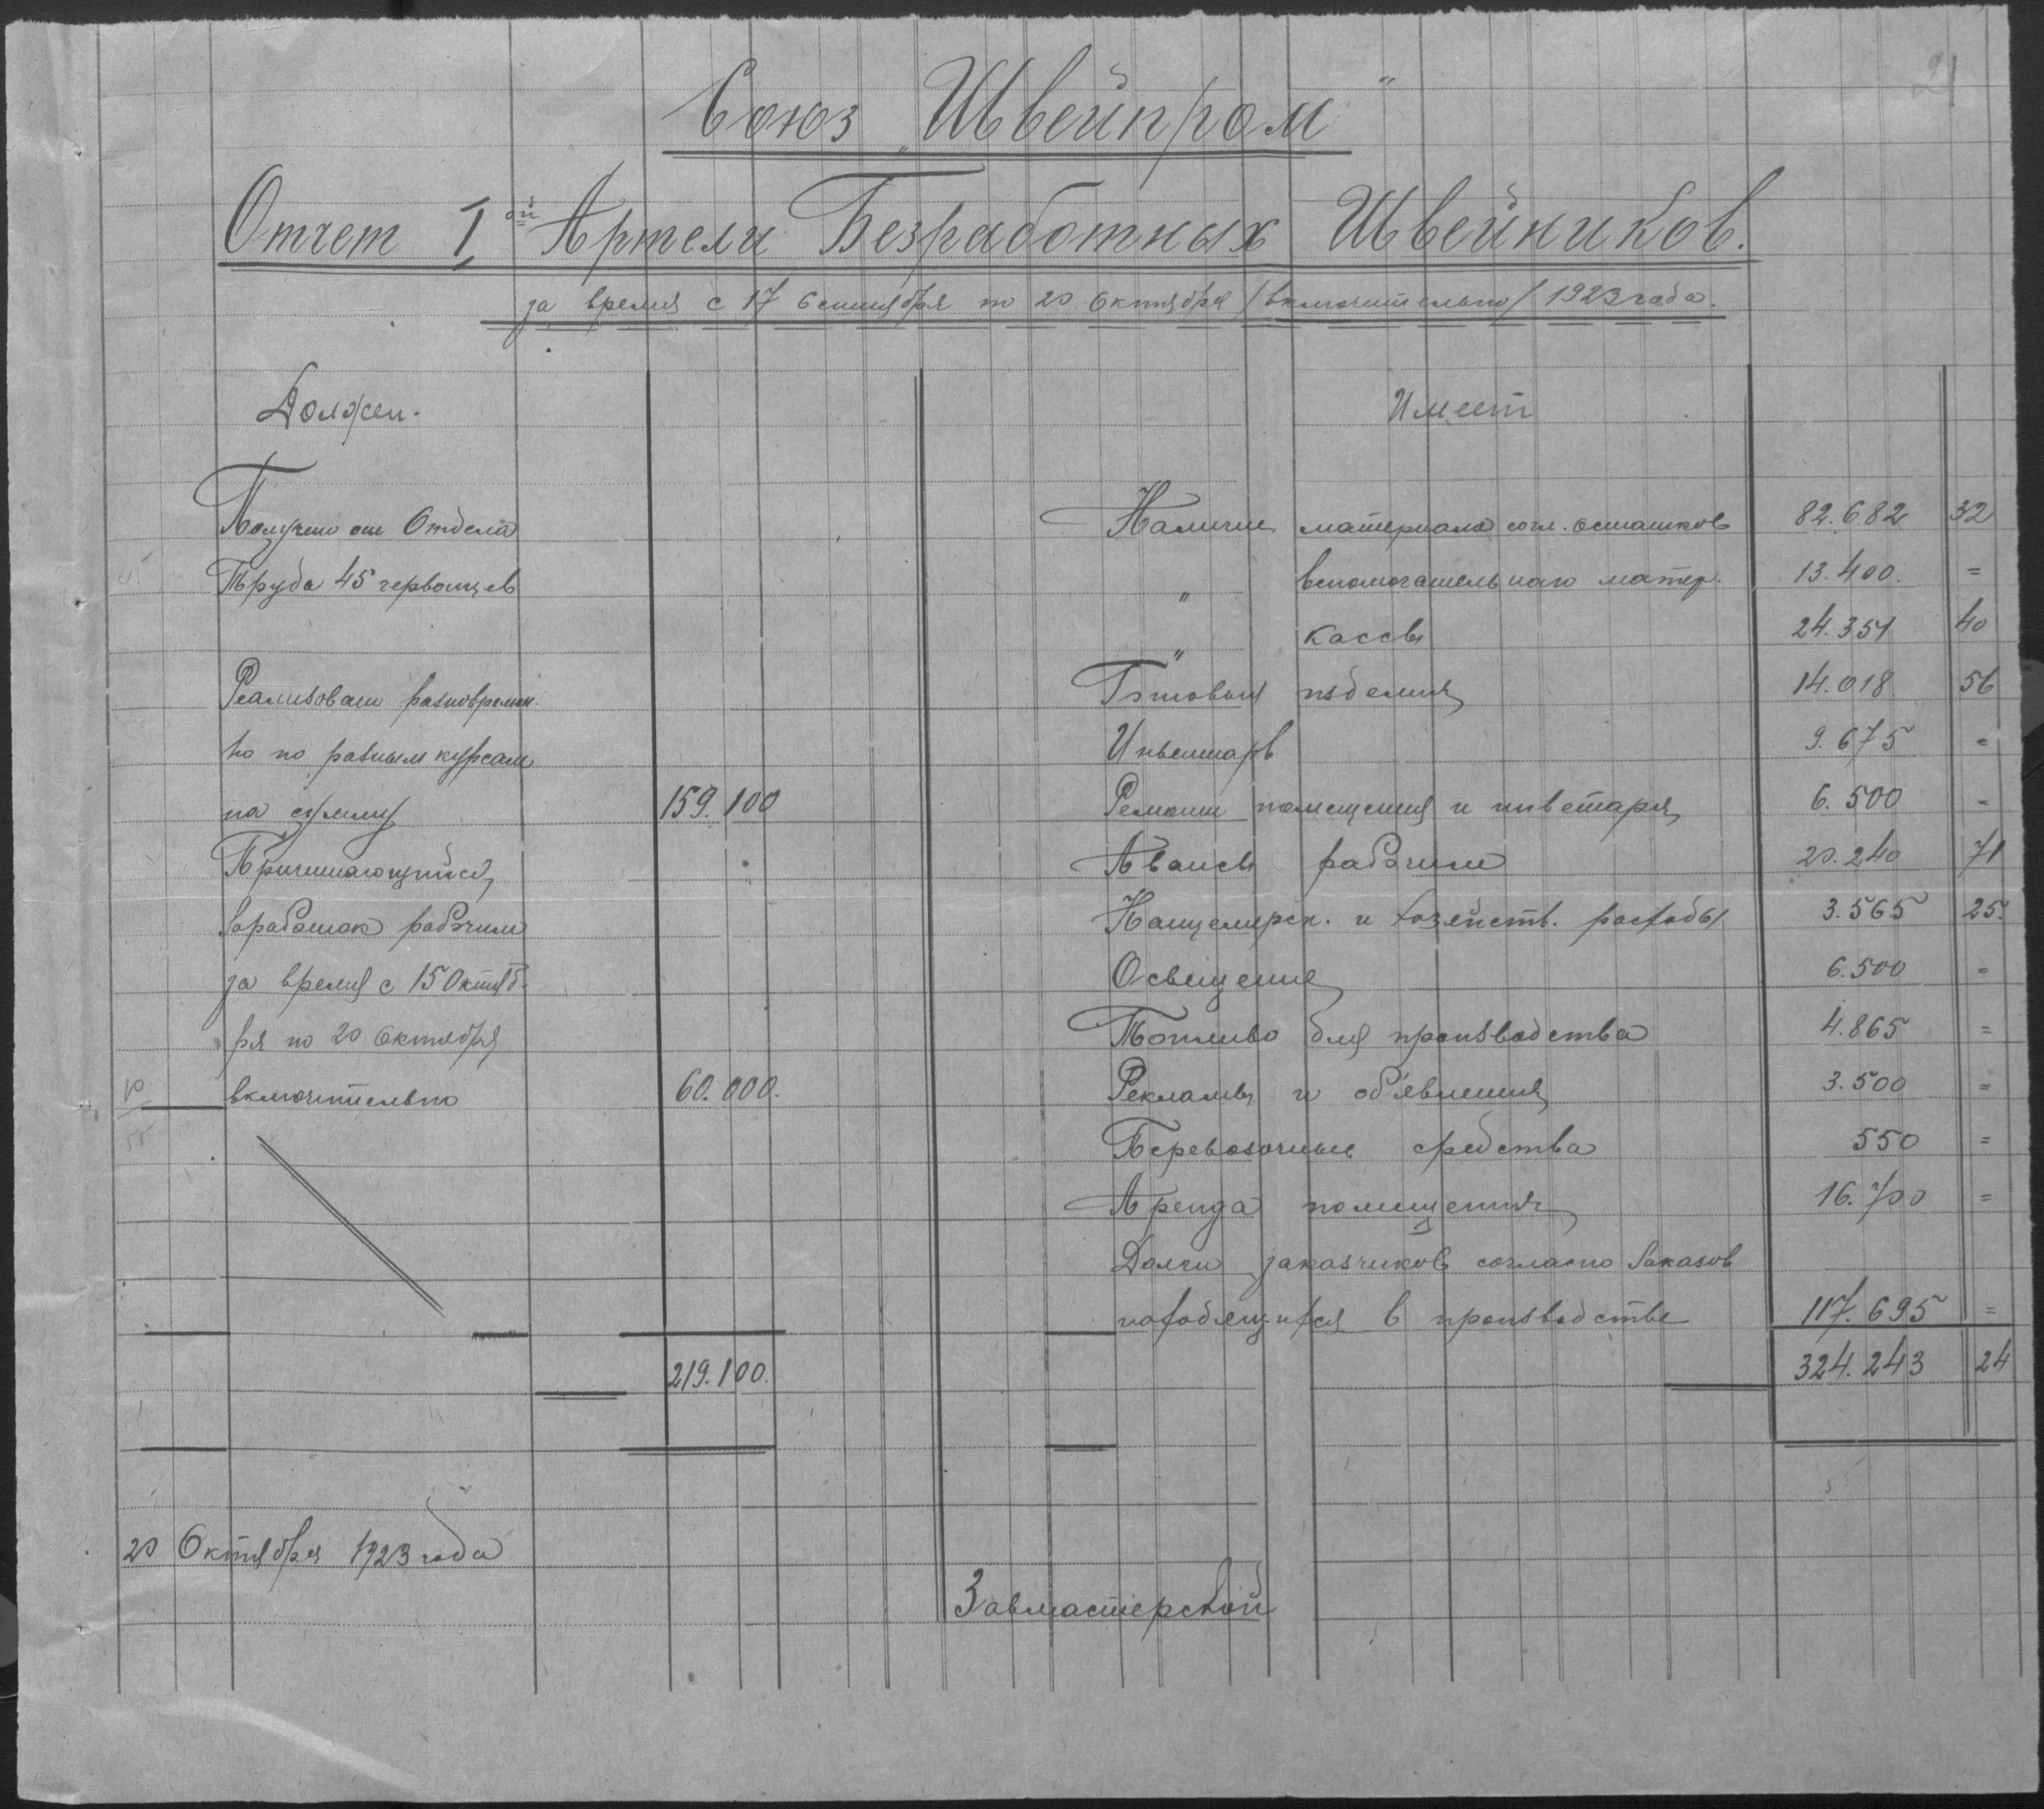 21
Союз „Швейпром"
Отчет I ой Артели Безработных Швейников.
за время с 17 Сентября по 20 Октября /включительно/ 1923 года.
Должен.
Получено от Отдела
Труда 45 червонцев
Реализовано разновремен.
но по разным курсам
на сумму 159.100
Причитающийся
Заработок рабочим
за время с 15 Октяб-
ря по 20 Октября
включительно 60.000.
219.100.
Имеет
Наличие материала согл. остатков 82.682 32
" вспомогательнаго матер. 13.400. =
" кассы 24.351 40
Готовыя изделия 14.018. 56
Инвентарь 9.675 =
Ремонт помещения и инветаря 6.500 -
Авансы рабочим 20.240 71
Канцелярск. и хозяйств. расходы 3.565 25.
Освещение 6.500 -
Топливо для производства 4.865 =
Рекламы и об'явления 3.500 =
Перевозочные средства 550 =
Аренда помещения 16.700 =
Долги заказчиков согласно Заказов
находящихся в производстве 117.695 =
324.243 24
20 Октября 1923 года
Завмастерской